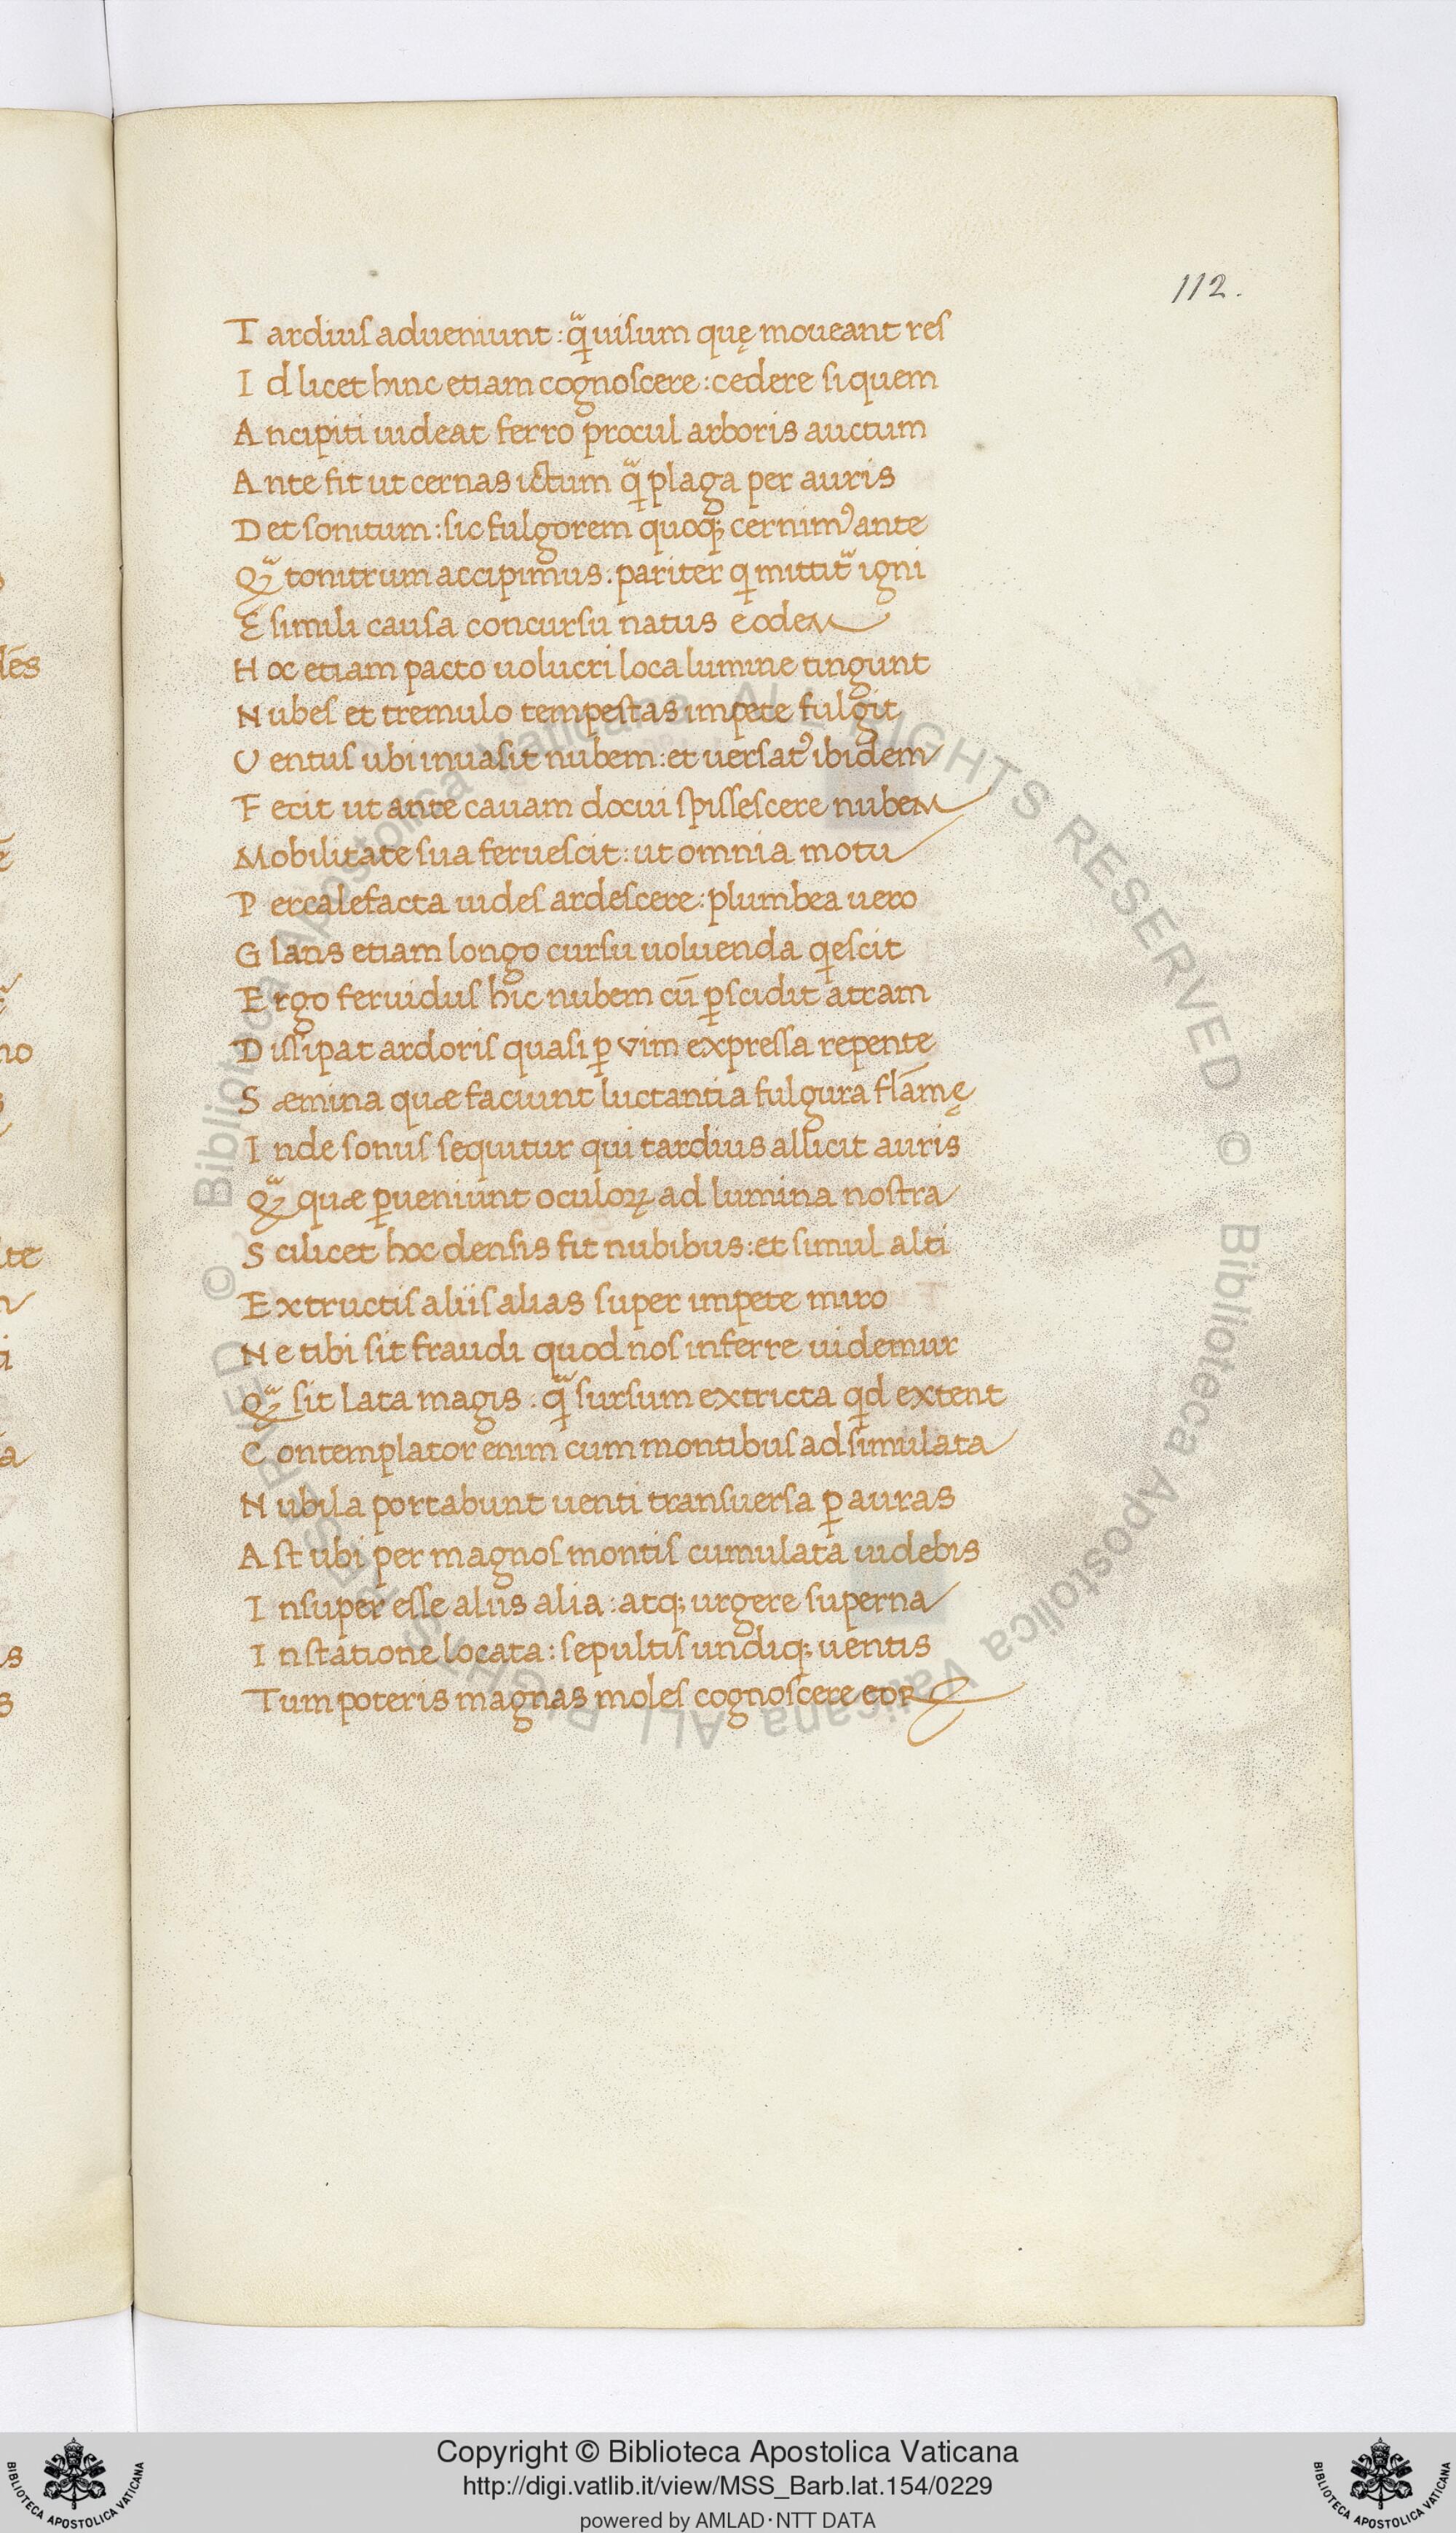 112.
Tardius adueniunt : qᷓ uisum quę moueant res
Id licet hinc etiam cognoscere : cedere si quem
Ancipiti uideat ferro procul arboris auctum
Ante fit ut cernas ictum qᷓ plaga per auris
Det sonitum : sic fulgorem quoq; cernimꝰ ante
Qᷓ tonitrum accipimus : pariter qi mittitᷣ igni
E simili causa concursu natus eodem
Hoc etiam pacto uolucri loca lumine tingunt
Nubes et tremulo tempestas impete fulgit
Uentus ubi inuasit nubem : et uersatꝰ ibidem
Fecit ut ante cauam docui spissescere nubem
Mobilitate sua feruescit : ut omnia motu
Percalefacta uides ardescere : plumbea uero
Glans etiam longo cursu uoluenda qescit
Ergo feruidus hic nubem cū ꝑscidit atram
Dissipat ardoris quasi ꝑ vim expressa repente
Sæmina quæ faciunt luctantia fulgura flāmę
Inde sonus sequitur qui tardius allicit auris
Qᷓ quæ ꝑueniunt oculoꝝ ad lumina nostra
Scilicet hoc densis fit nubibus : et simul alti
Extructis aliis alias super impete miro
Ne tibi sit fraudi quod nos inferre uidemur
Qᷓ sit lata magis : qᷓ sursum extricta qd extent
Contemplator enim cum montibus adsimulata
Nubila portabunt uenti transuersa ꝑ auras
Ast ubi per magnos montis cumulata uidebis
Insuper esse aliis alia : atq; urgere superna
In statione locata : sepultis undiq; uentis
Tum poteris magnas moles cognoscere eoꝝ
© Biblioteca Apostolica Vaticana ALL RIGHTS RESERVED © Biblioteca Apostolica Vaticana ALL RIGHTS RESERVED
Copyright © Biblioteca Apostolica Vaticana
http://digi.vatlib.it/view/MSS_Barb.lat.154/0229
powered by AMLAD·NTT DATA
BIBLIOTECA APOSTOLICA VATICANA
BIBLIOTECA APOSTOLICA VATICANA